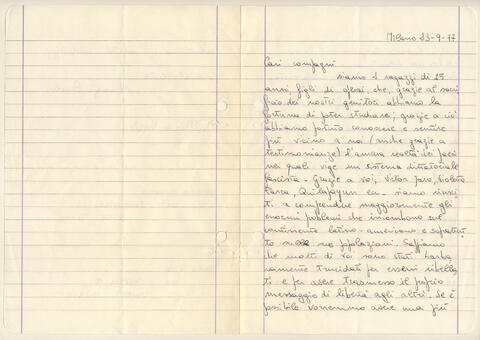 Milano 23-9-77
Cari compagni
siamo 2 ragazzi di 15
anni, figli di operai che, grazie al sacri
ficio dei nostri genitori abbiamo la
fortuna di poter studiare; grazie a ciò
abbiamo potuto conoscere e sentire
più vicino a noi (anche grazie a
testimonianze) l'amara realtà dei paesi
nei quali vige un sistema dittatoriale
fascista - Grazie a voi, Victor Jara, Violeta
Parra, Quilapayun ecc - siamo riusci
ti a comprendere maggiormente gli
enormi problemi che incombono sul
continente latino-americano e soprattut
to sulle sue popolazioni. Sappiamo
che molti di voi sono stati barba
ramente trucidati per essersi ribella
ti e per avere trasmesso il proprio
messaggio di libertà agli altri. Se è
possibile vorremmo avere una più